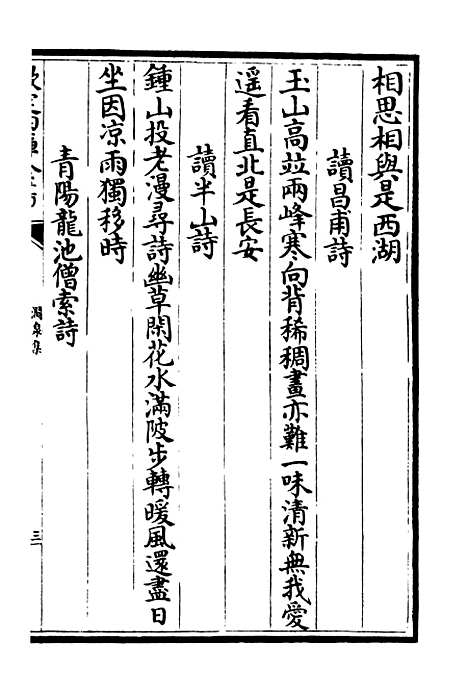 相思相與是西湖
讀昌甫詩
玉山高竝兩峰寒向背稀稠畫亦難一味清新無我愛
遥看直北是長安
讀半山詩
鍾山投老漫尋詩幽草閑花水滿陂步轉暖風還盡日
坐因凉雨獨移時
青陽龍池僧索詩
澗泉集
三